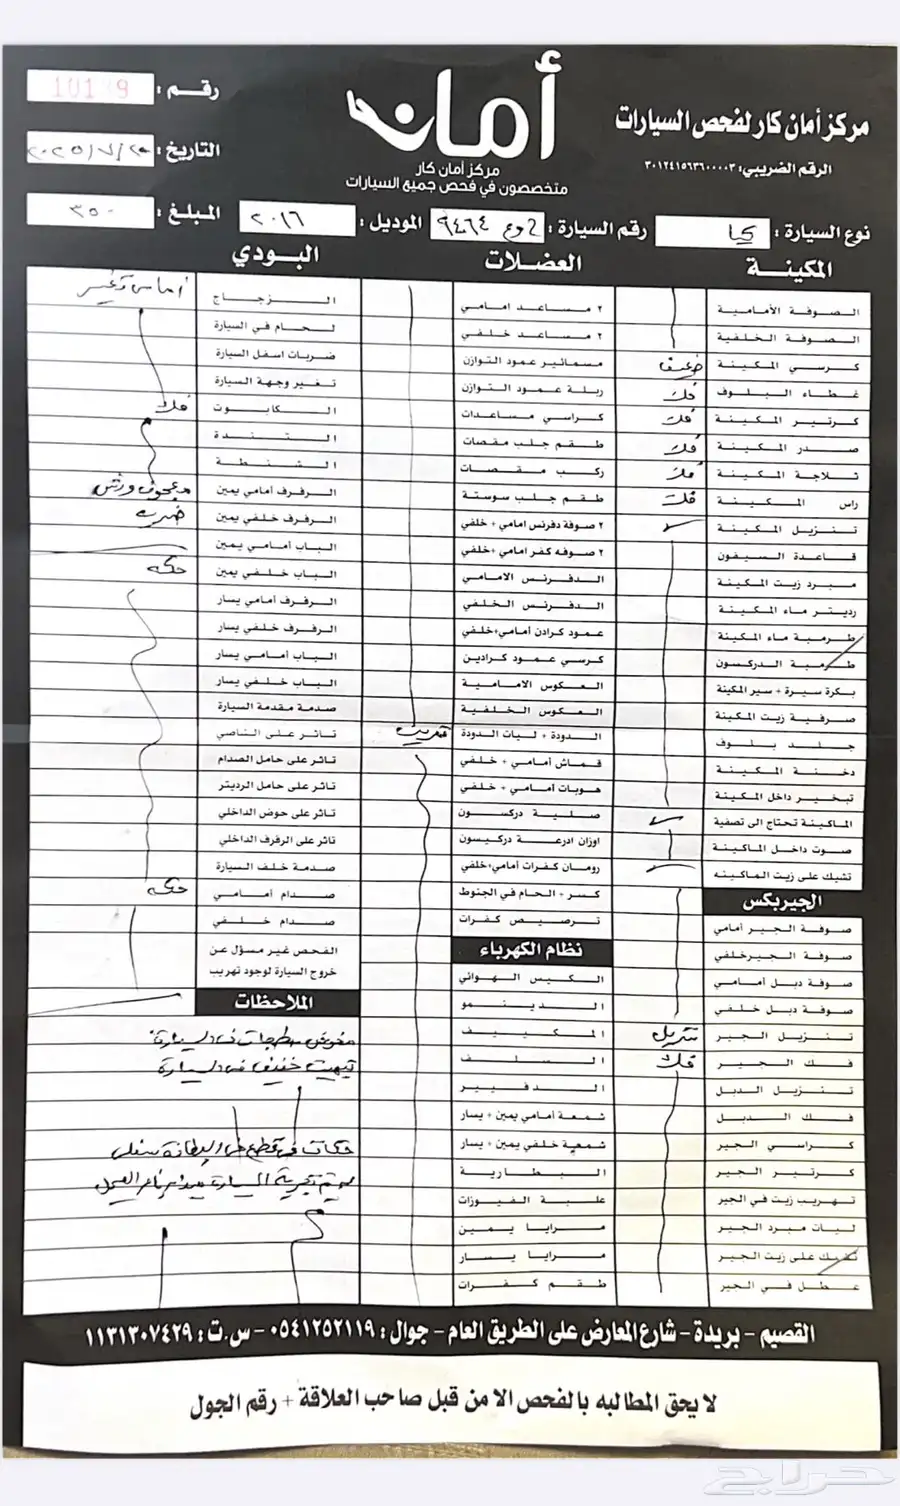 أمان
مركز أمان كار
متخصصون في فحص جميع السيارات
مركز أمان كار لفحص السيارات
الرقم الضريبي: ٣٠١٢٤١٥٦٣٦٠٠٠٠٣
رقم:
التاريخ:
المبلغ: ٣٥٠
نوع السيارة:
رقم السيارة: ٩٤٦٤
الموديل: ٢٠١٦
المكينة
الصوفة الأمامية
الصوفة الخلفية
كرسي المكينة ضعيف
غطاء البلوف فك
كرتير المكينة فك
صدر المكينة فك
ثلاجة المكينة فك
راس المكينة فك
تنزيل المكينة
قاعدة السيفون
مبرد زيت المكينة
رديتر ماء المكينة
طرمبة ماء المكينة
طرمبة الدركسون
بكرة سيرة + سير المكينة
صرفية زيت المكينة
جلد بلوف
دخنة المكينة
تبخير داخل المكينة
الماكينة تحتاج الى تصفية
صوت داخل الماكينة
تشيك على زيت الماكينه
الجيربكس
صوفة الجير أمامي
صوفة الجيرخلفي
صوفة دبل أمامي
صوفة دبل خلفي
تنزيل الجير تنزيل
فك الجير فك
تنزيل الدبل
فك الدبل
كراسي الجير
كرتير الجير
تهريب زيت في الجير
ليات مبرد الجير
تشيك على زيت الجير
عطل في الجير
العضلات
٢ مساعد امامي
٢ مساعد خلفي
مسمائير عمود التوازن
ربلة عمود التوازن
كراسي مساعدات
طقم جلب مقصات
ركب مقصات
طقم جلب سوستة
٢ صوفة دفرنس امامي + خلفي
٢ صوفه كفر امامي +خلفي
الدفرنس الامامي
الدفرنس الخلفي
عمود كرادن أمامي+خلفي
كرسي عمود كرادين
العكوس الامامية
العكوس الخلفية
الدودة + ليات الدودة تهريب
قماش أمامي + خلفي
هوبات أمامي + خلفي
صلية دركسون
اوزان ادرعة دركيسون
رومان كفرات أمامي+خلفي
كسر + الحام في الجنوط
ترصيص كفرات
نظام الكهرباء
الكيس الهوائي
الدينمو
المكييف
السلف
الدفيير
شمعة أمامي يمين + يسار
شمعة خلفي يمين + يسار
البطارية
علبة الفيوزات
مرايا يمين
مرايا يسار
طقم كفرات
البودي
الزجاج
لحام في السيارة
ضربات اسفل السيارة
تغير وجهة السيارة
الكابوت فك
التندة
الشنطة
الرفرف أمامي يمين معجون ورش
الرفرف خلفي يمين ضربه
الباب أمامي يمين
الباب خلفي يمين حكه
الرفرف أمامي يسار
الرفرف خلفي يسار
الباب أمامي يسار
الباب خلفي يسار
صدمة مقدمة السيارة
تاثر على الناصي
تاثر على حامل الصدام
تاثر على حامل الرديتر
تاثر على حوض الداخلي
تاثر على الرفرف الداخلي
صدمة خلف السيارة
صدام أمامي حكه
صدام خلفي
الفحص غير مسؤل عن
خروج السيارة لوجود تهريب
الملاحظات
في السيارة
تبهيت خفيف في السيارة
حكات في
القصيم - بريدة - شارع المعارض على الطريق العام - جوال: ٠٥٤١٢٥٢١١٩ - س.ت: ١١٣١٣٠٧٤٢٩
لا يحق المطالبه بالفحص الا من قبل صاحب العلاقة + رقم الجول
حراج